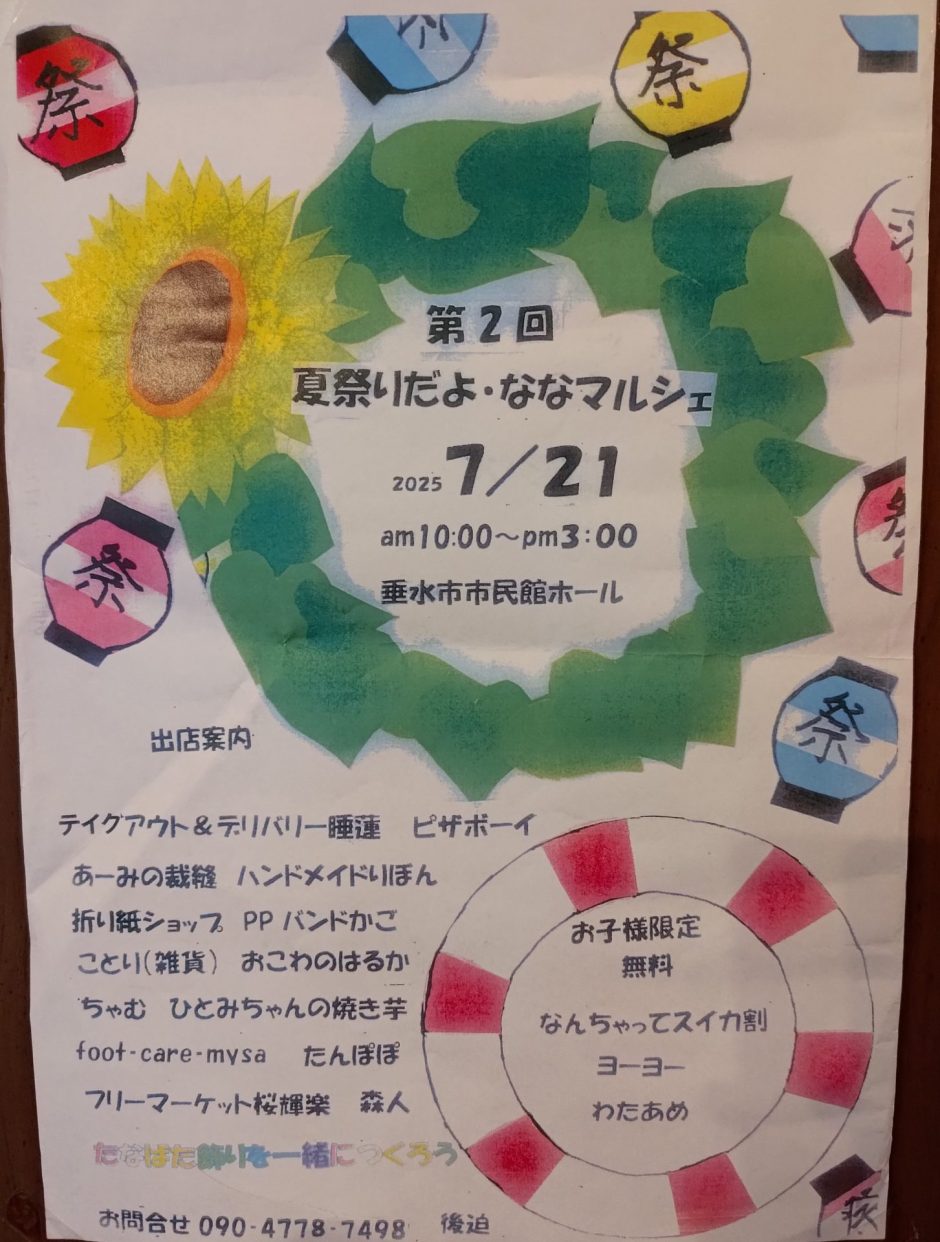 祭
祭
第2回
夏祭りだよ・ななマルシェ
2025 7/21
am10:00～pm3:00
垂水市市民館ホール
祭
祭
出店案内
テイクアウト&デリバリー睡蓮 ピザボーイ
あーみの裁縫 ハンドメイドりぼん
折り紙ショップ PPバンドかご
ことり(雑貨) おこわのはるか
ちゃむ ひとみちゃんの焼き芋
foot-care-mysa たんぽぽ
フリーマーケット桜輝楽 森人
たなばた飾りを一緒につくろう
お子様限定
無料
なんちゃってスイカ割
ヨーヨー
わたあめ
お問合せ 090-4778-7498 後迫